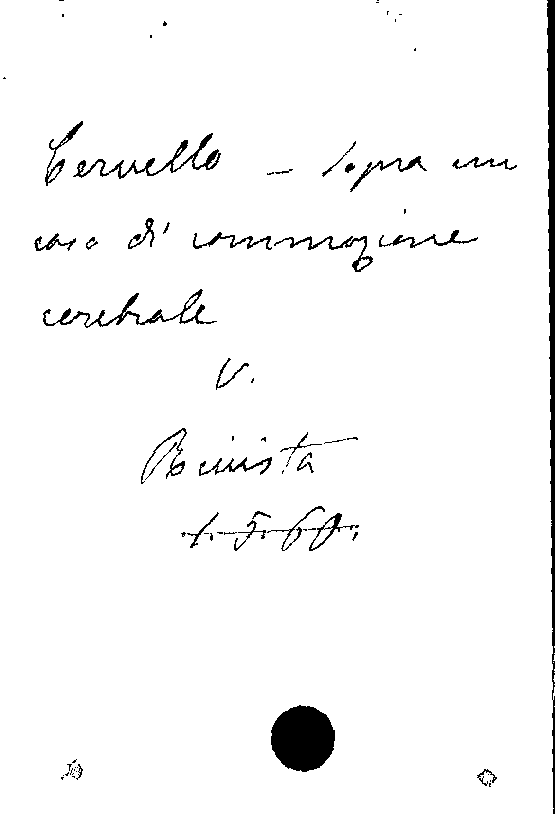 Cervello – Sopra un
caso di commozione
cerebrale
V.
Rivista
1.5.60.